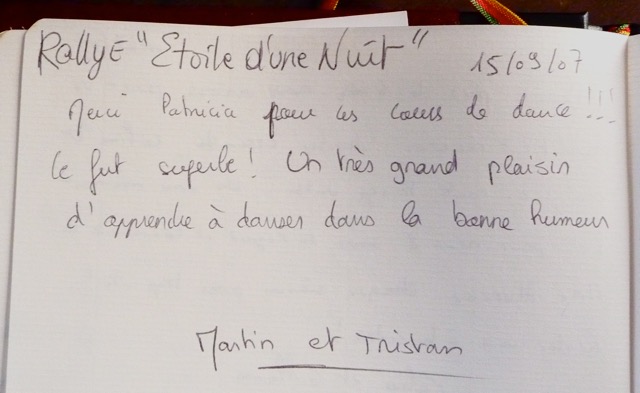 Rallye "Etoile d'une Nuit" 15/09/07
Merci Patricia pour ces cours de dance !!!
Ce fut superbe ! Un très grand plaisir
d'apprendre à danser dans la bonne humeur
Martin et Tristan